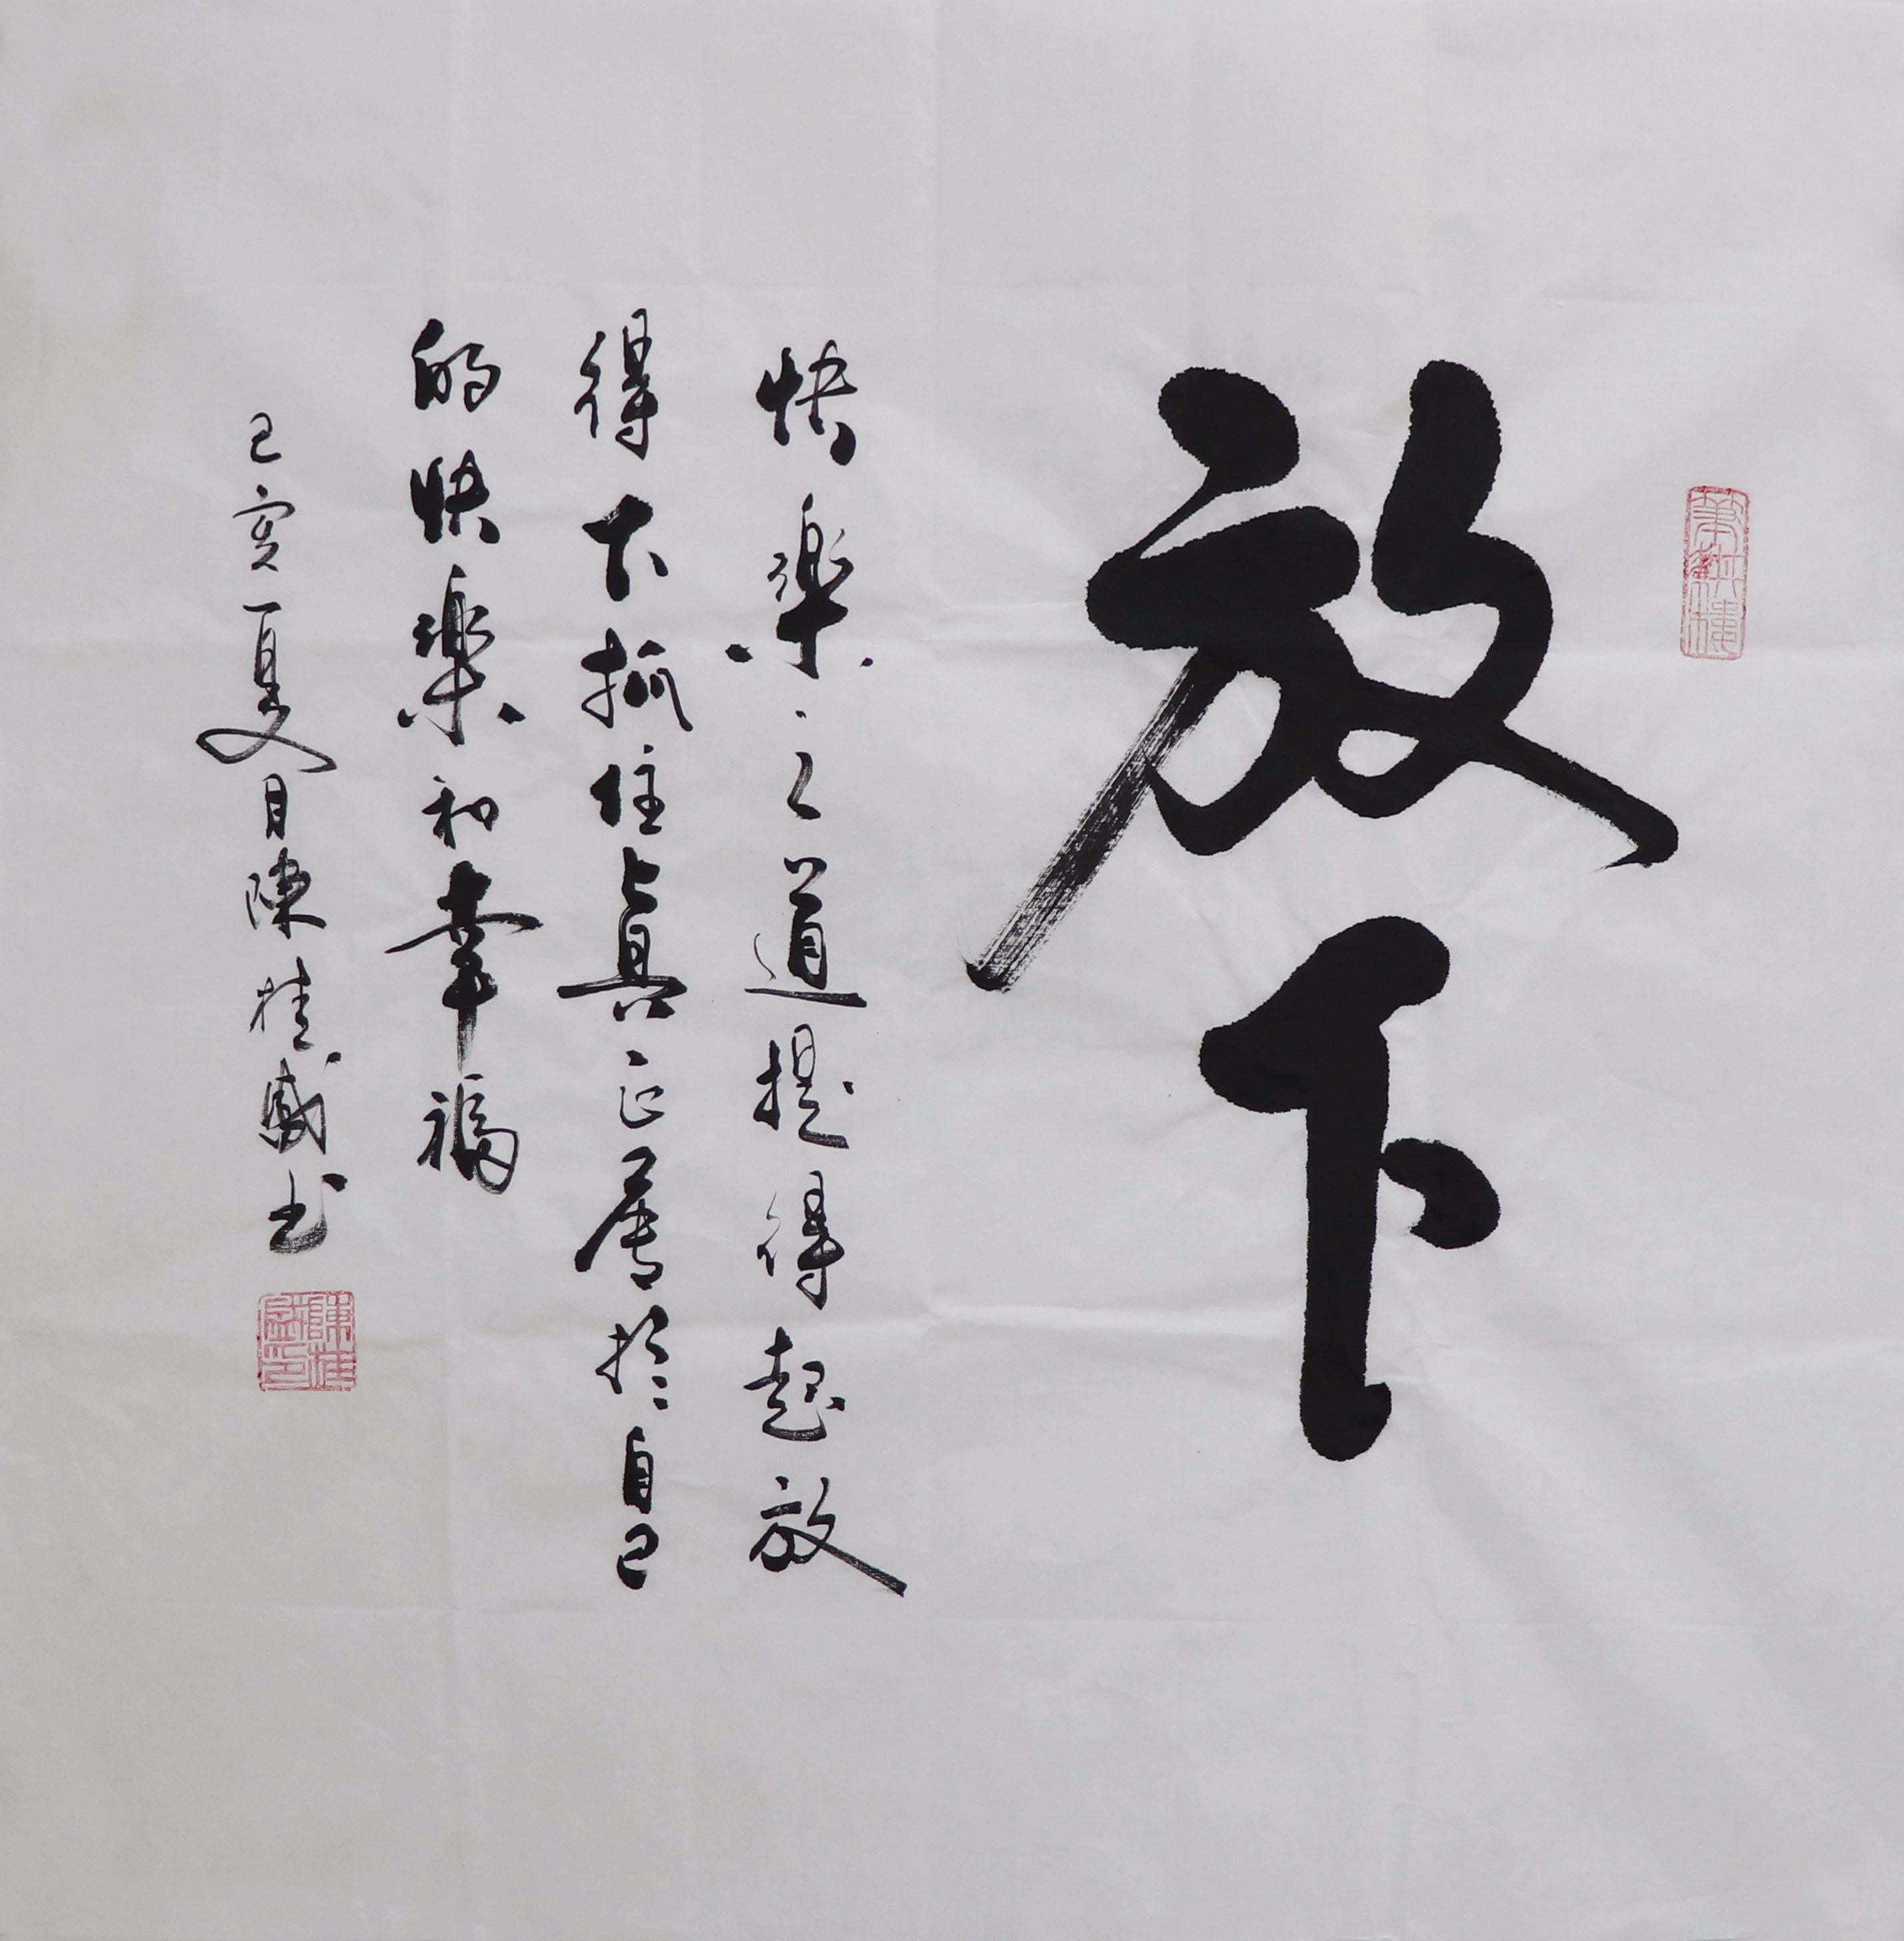 放下
快樂之道提得起放
得下抓住真正屬於自己
的快樂和幸福
己亥夏月陳桂盛書